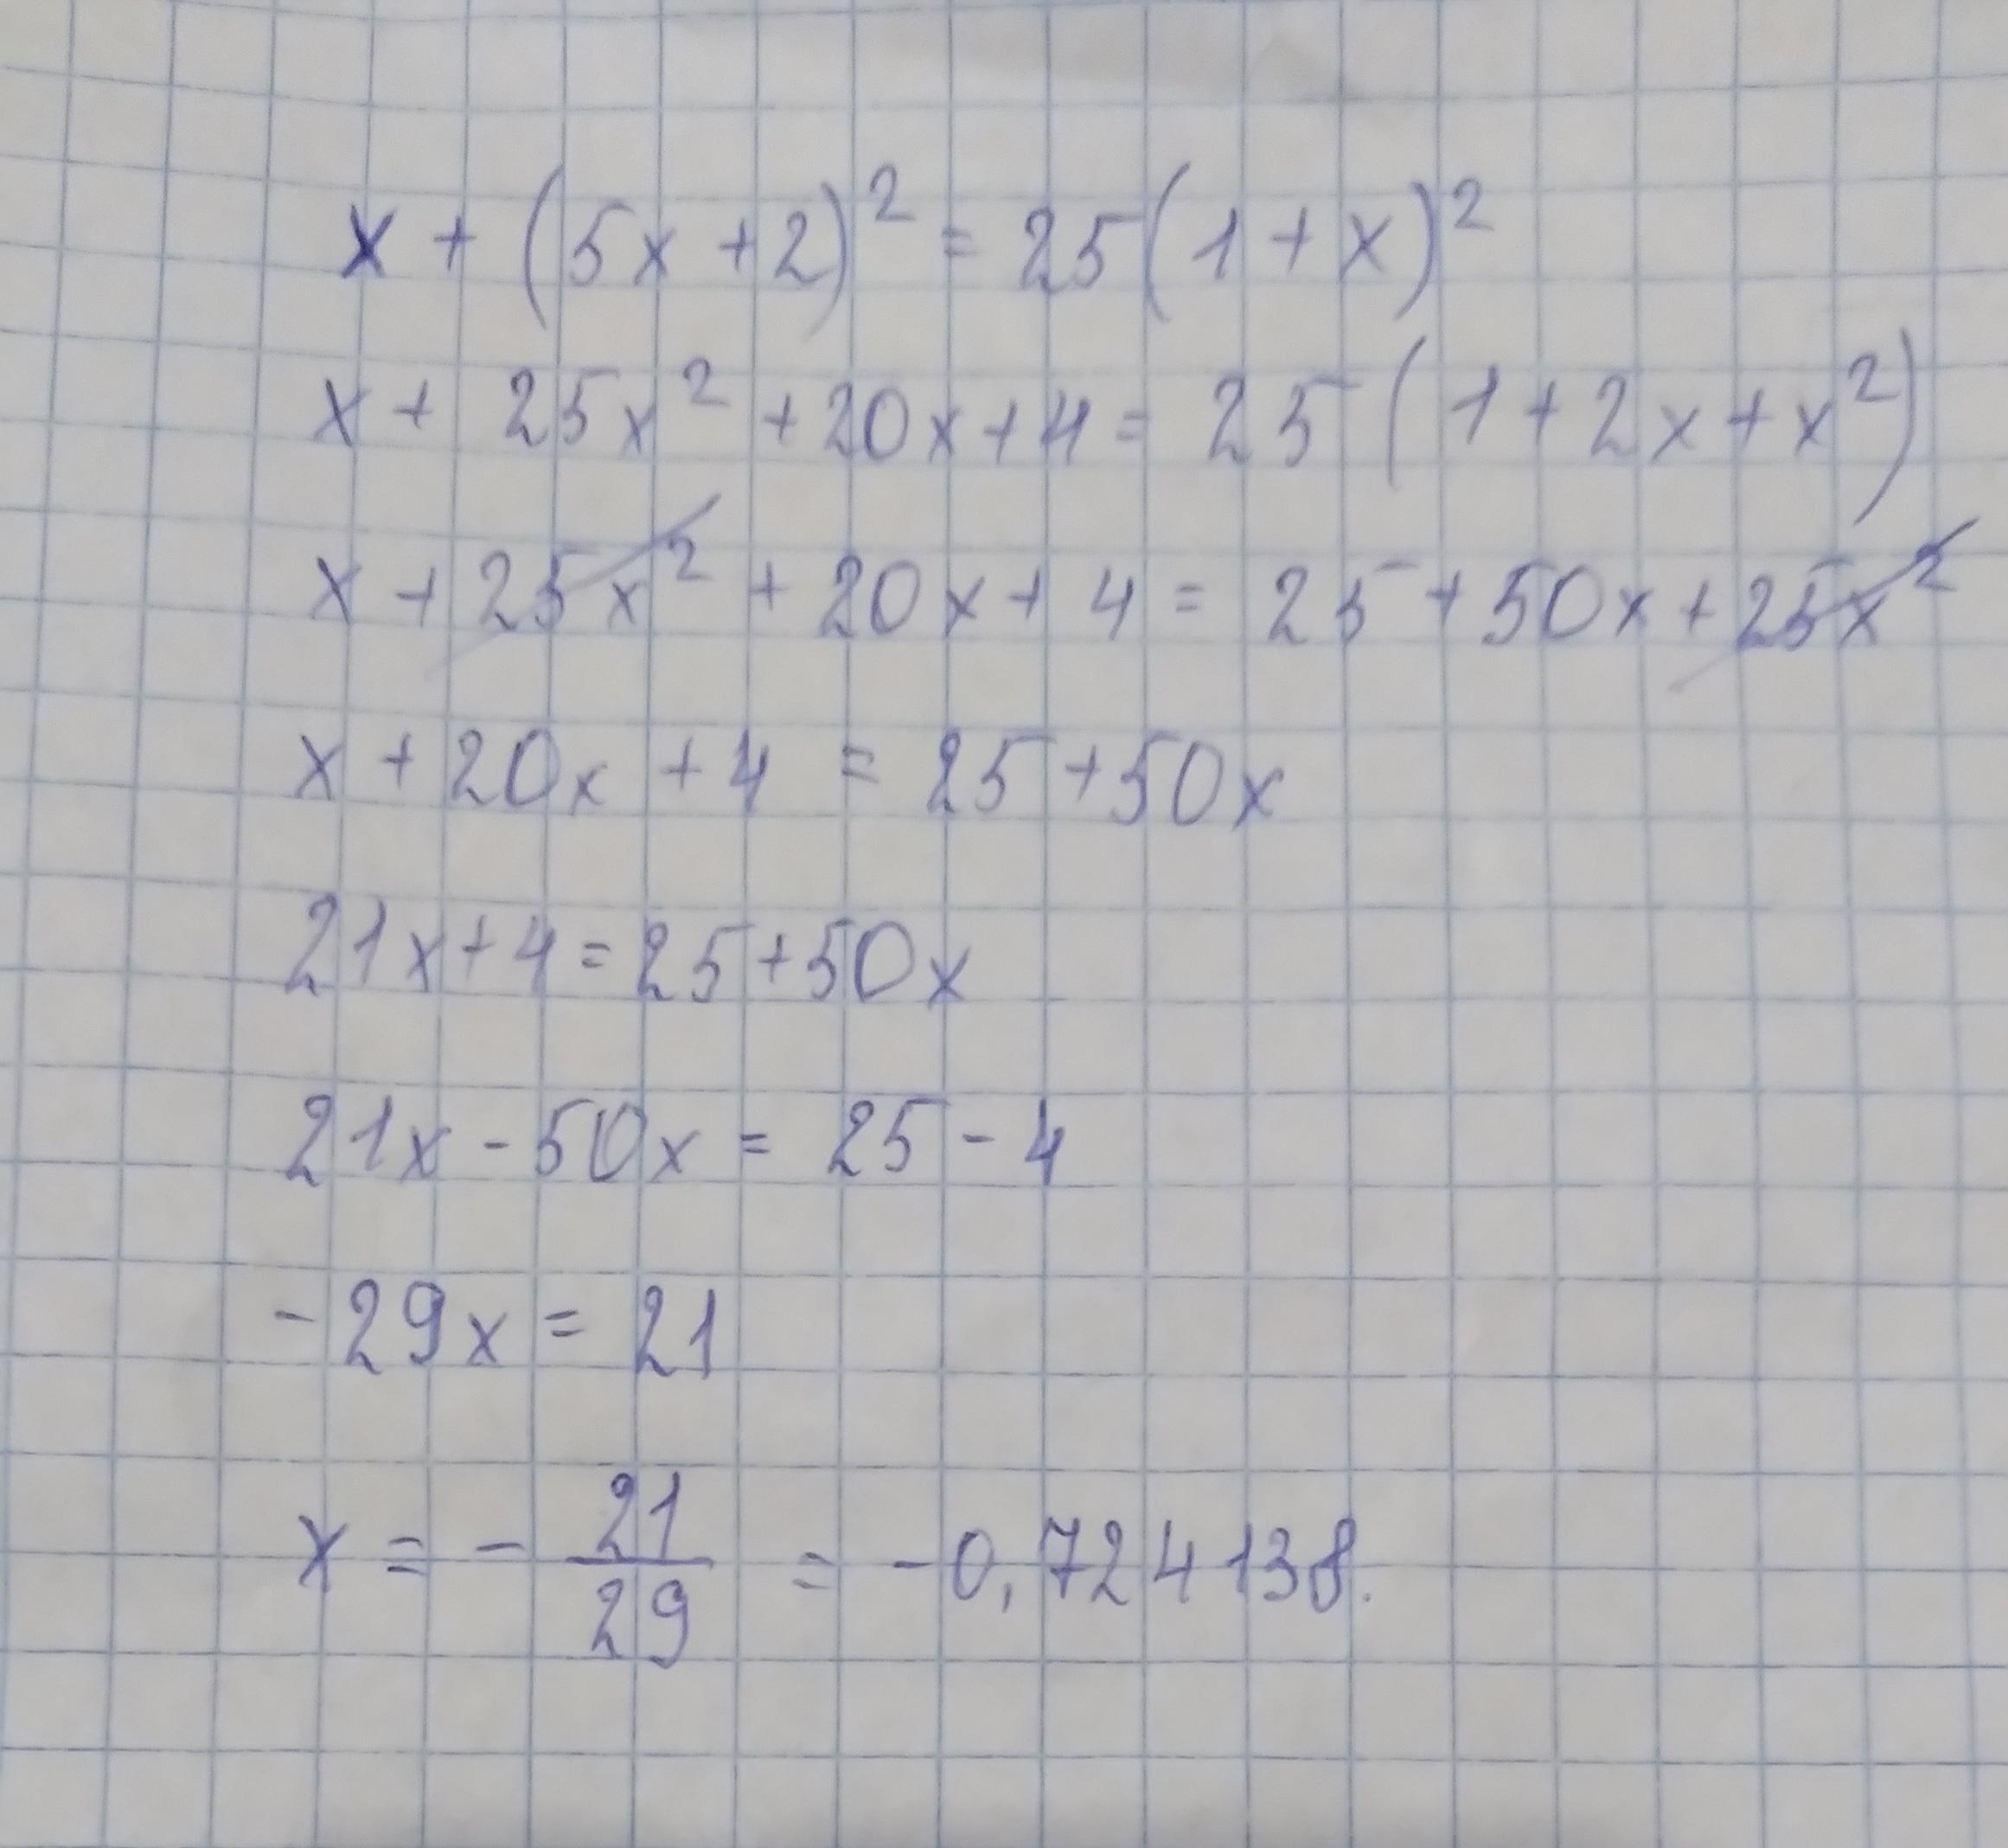 x + (5x + 2)² = 25(1 + x)²
x + 25x² + 20x + 4 = 25(1 + 2x + x²)
x + 25x² + 20x + 4 = 25 + 50x + 25x²
x + 20x + 4 = 25 + 50x
21x + 4 = 25 + 50x
21x - 50x = 25 - 4
-29x = 21
x = - 21/29 = -0,724138.